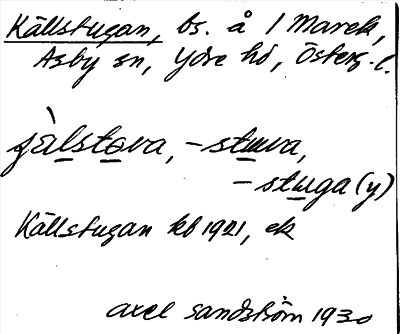 Källstugan, bs. å 1 Marek,
Asby sn, Ydre hd, Österg. l.
jàlstova, -stuva,
-stuga (y)
Källstugan kb 1921, ek
Axel Sandström 1930